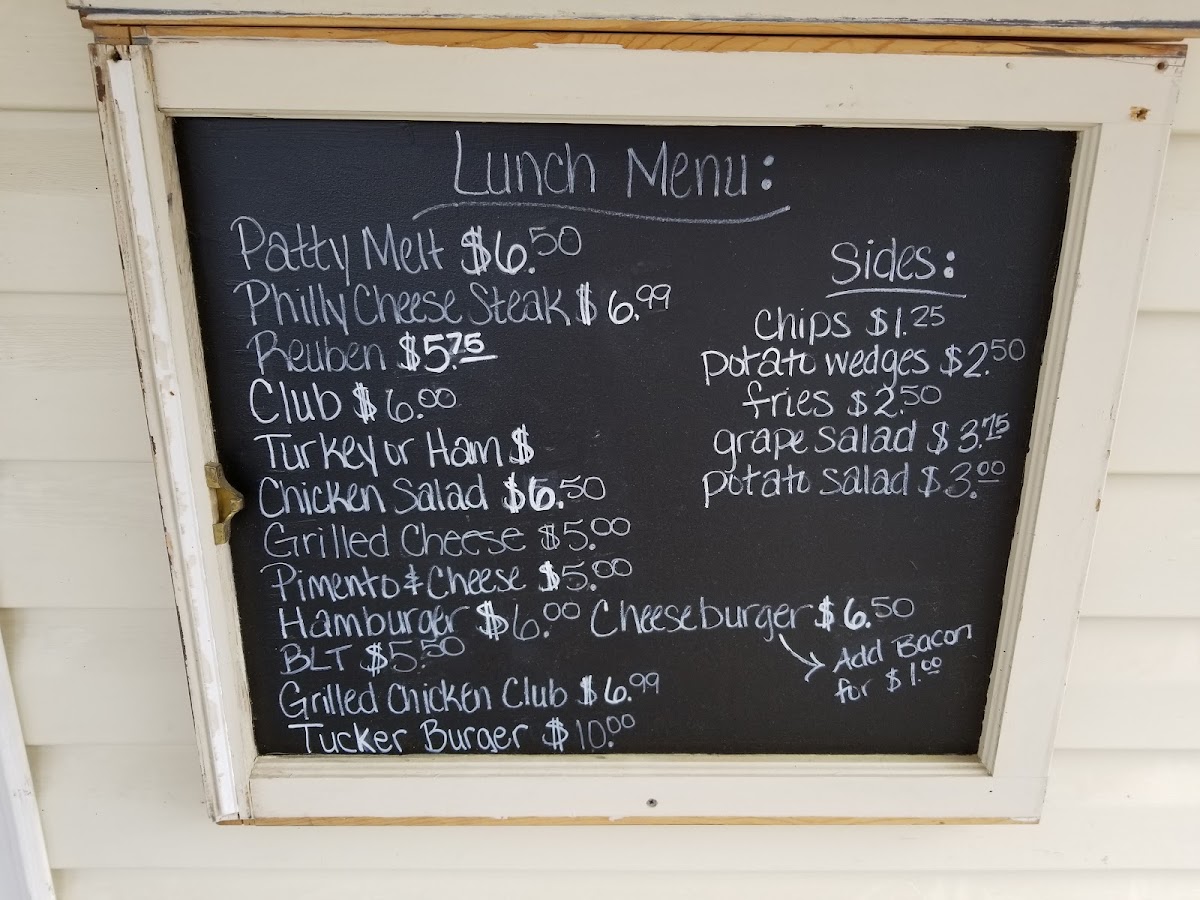 Lunch Menu:
Patty Melt $6.50
Philly Cheese Steak $6.99
Reuben $5.75
Club $6.00
Turkey or Ham $
Chicken Salad $6.50
Grilled Cheese $5.00
Pimento & Cheese $5.00
Hamburger $6.00 Cheeseburger $6.50
Add Bacon
for $1.00
BLT $5.50
Grilled Chicken Club $6.99
Tucker Burger $10.00
Sides:
Chips $1.25
potato wedges $2.50
fries $2.50
grape salad $3.75
potato salad $3.00